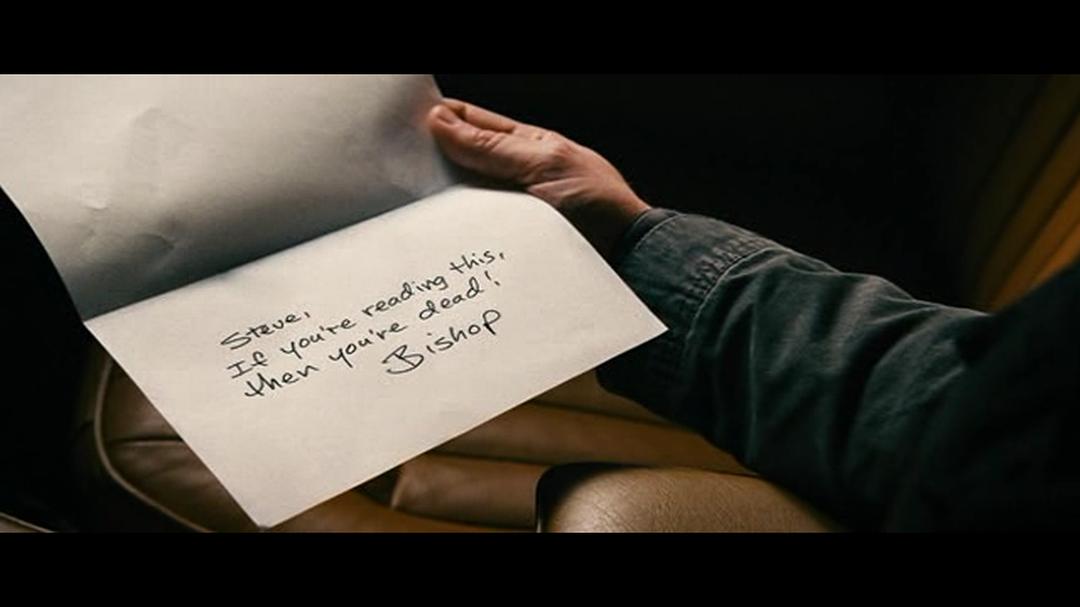 Steve,
If you're reading this,
then you're dead!
Bishop